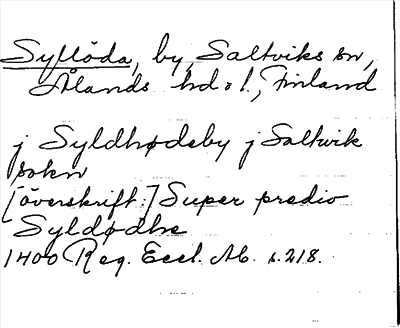 Syllöda, by, Saltviks sn,
Ålands hd o l., Finland
j Syldhødeby j Saltwik
sokn
[överskrift:] Super predio
Syldødhe
1400 Reg. Eccl. Ab. s. 218.